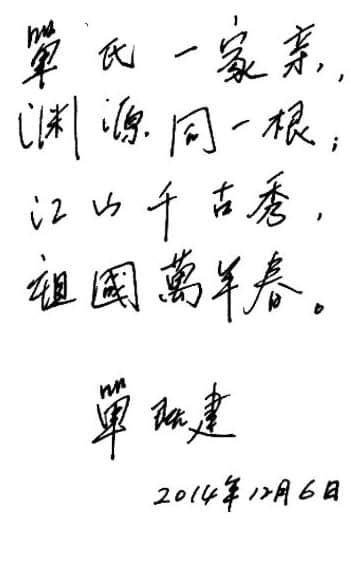 單氏一家亲,
渊源同一根;
江山千古秀,
祖國萬年春。
單 建
2014年12月6日